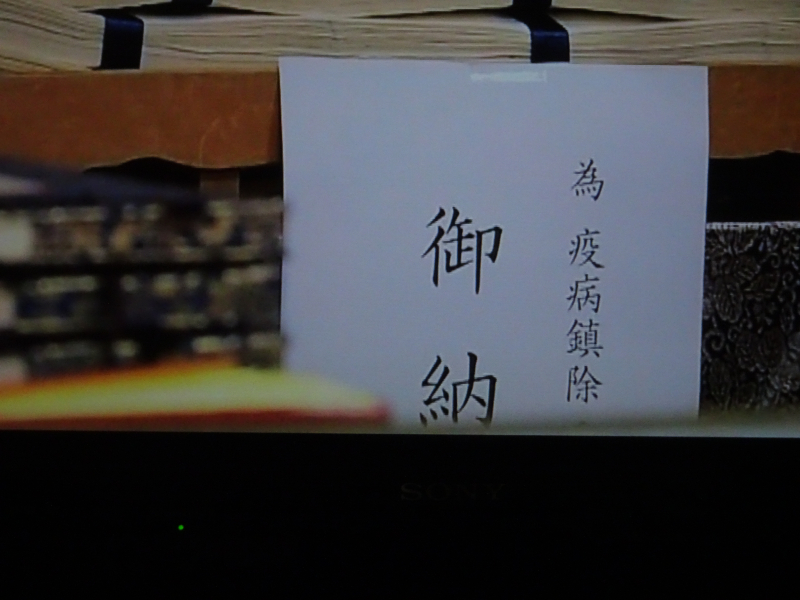 為 疫病鎮除
御納
SONY